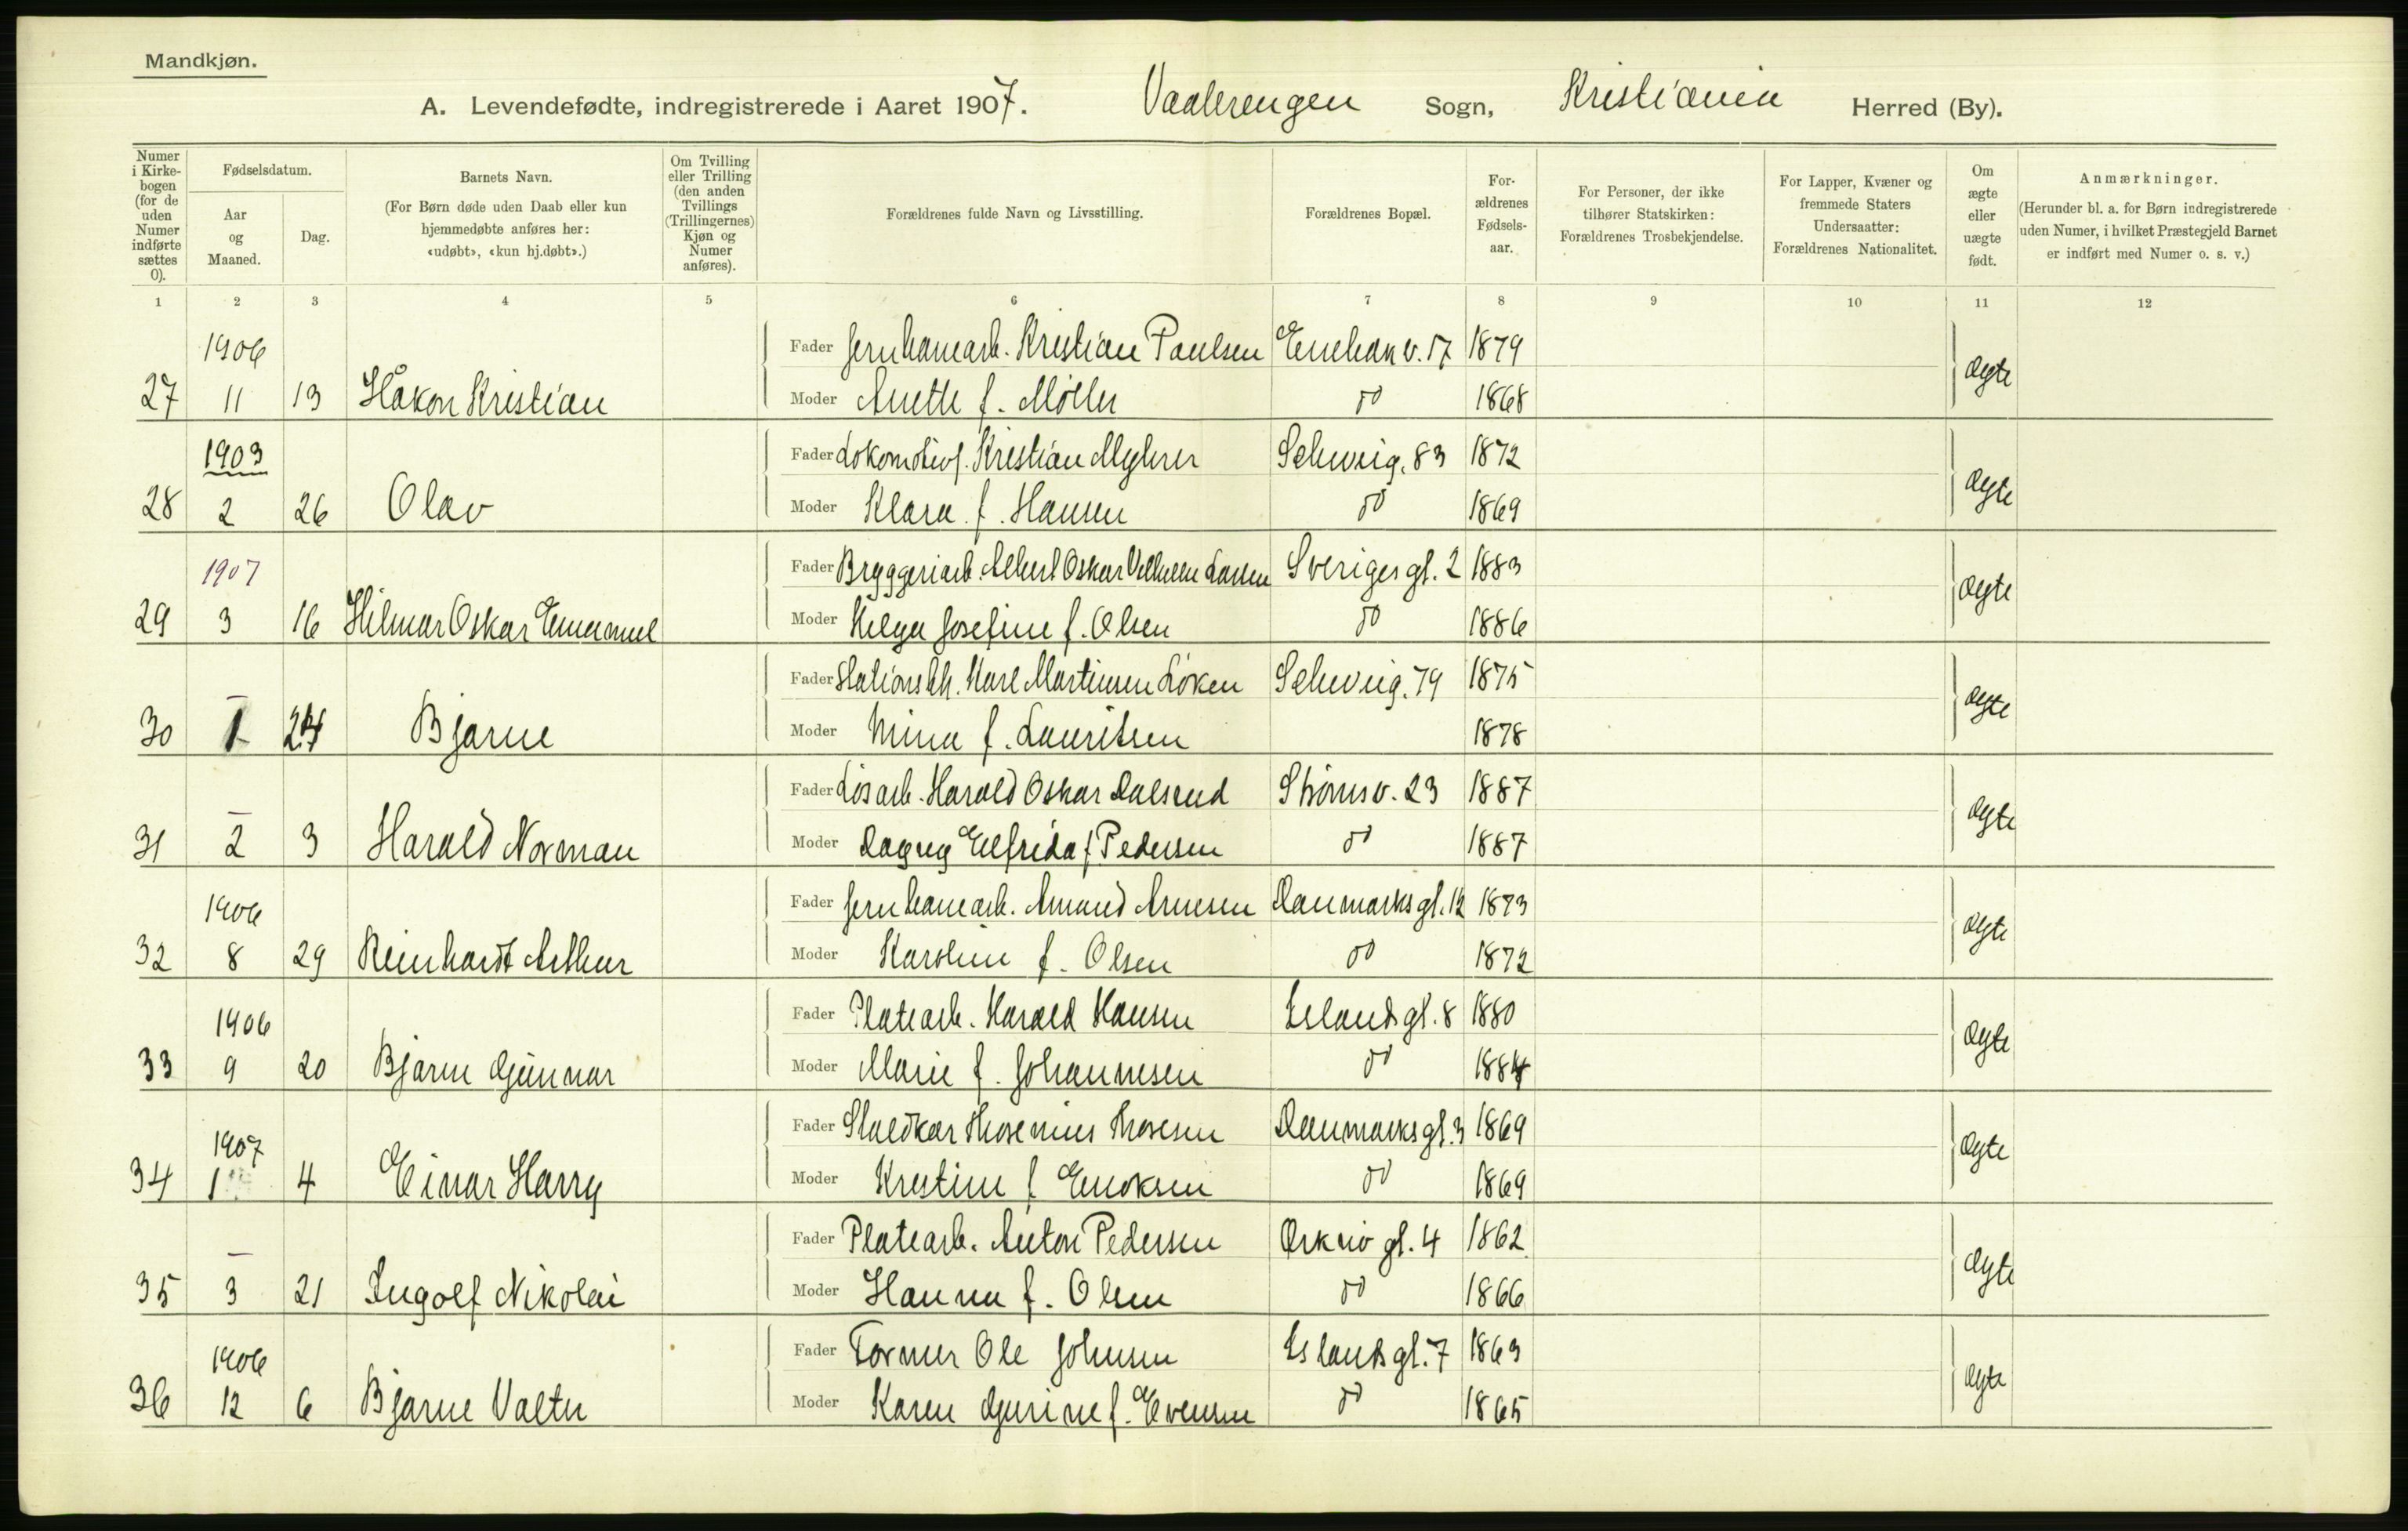 Mandkjøn.
A. Levendefødte, indregistrerede i Aaret 1907. Vaalerengen Sogn, Kristiania Herred (By).
Numer i Kirkebogen (for de uden Numer indførte sættes 0).
Fødselsdatum.
Aar og Maaned.
Dag.
Barnets Navn.
(For Børn døde uden Daab eller kun hjemmedøbte anføres her: «udøbt», «kun hj.døbt».)
Om Tvilling eller Trilling (den anden Tvillings (Trillingernes) Kjøn og Numer anføres).
Forældrenes fulde Navn og Livsstilling.
Forældrenes Bopæl.
Forældrenes Fødselsaar.
For Personer, der ikke tilhører Statskirken: Forældrenes Trosbekjendelse.
For Lapper, Kvæner og fremmede Staters Undersaatter: Forældrenes Nationalitet.
Om ægte eller uægte født.
Anmærkninger.
(Herunder bl. a. for Børn indregistrerede uden Numer, i hvilket Præstegjeld Barnet er indført med Numer o. s. v.)
1 2 3 4 5 6 7 8 9 10 11 12
1906 Fader Jernbanearb. Kristian Paulsen Enebak v. 17 1879
27 11 13 Håkon Kristian Moder Anette f. Møller do 1868 ægte
1903 Fader Lokomotivf. Kristian Myhrer Schweig. 83 1872
28 2 26 Olav Moder Klara f. Hansen do 1869 ægte
1907 Fader Bryggeriarb. Albert Oskar Vilhelm Larsen Sveriges gt. 2 1883
29 3 16 Hilmar Oskar Emanuel Moder Helga Josefine f. Olsen do 1886 ægte
Fader Stationsbtj. Karl Martinsen Løken Schweig. 79 1875
30 1 24 Bjarne Moder Mina f. Lauritsen 1878 ægte
Fader Løsarb. Harald Oskar Dalsrud Strømsv. 23 1887
31 2 3 Harald Norman Moder Dagny Elfrida f. Pedersen do 1887 ægte
1906 Fader Jernbanearb. Amund Arnesen Danmarks gt. 12 1873
32 8 29 Reinhardt Arthur Moder Karoline f. Olsen do 1872 ægte
1906 Fader Platearb. Harald Hansen Islands gt. 8 1880
33 9 20 Bjarne Gunnar Moder Marie f. Johannesen do 1884 ægte
1907 Fader Staldkar Thosenius Thosesen Danmarks gt. 3 1869
34 1 4 Einar Harry Moder Kristine f. Enoksen do 1869 ægte
Fader Platearb. Anton Pedersen Orknø gt. 4 1862
35 3 21 Ingolf Nikolai Moder Hanna f. Olsen do 1866 ægte
1906 Fader Former Ole Johnsen Islands gt. 7 1863
36 12 6 Bjarne Valter Moder Karen Gurine f. Evensen do 1865 ægte